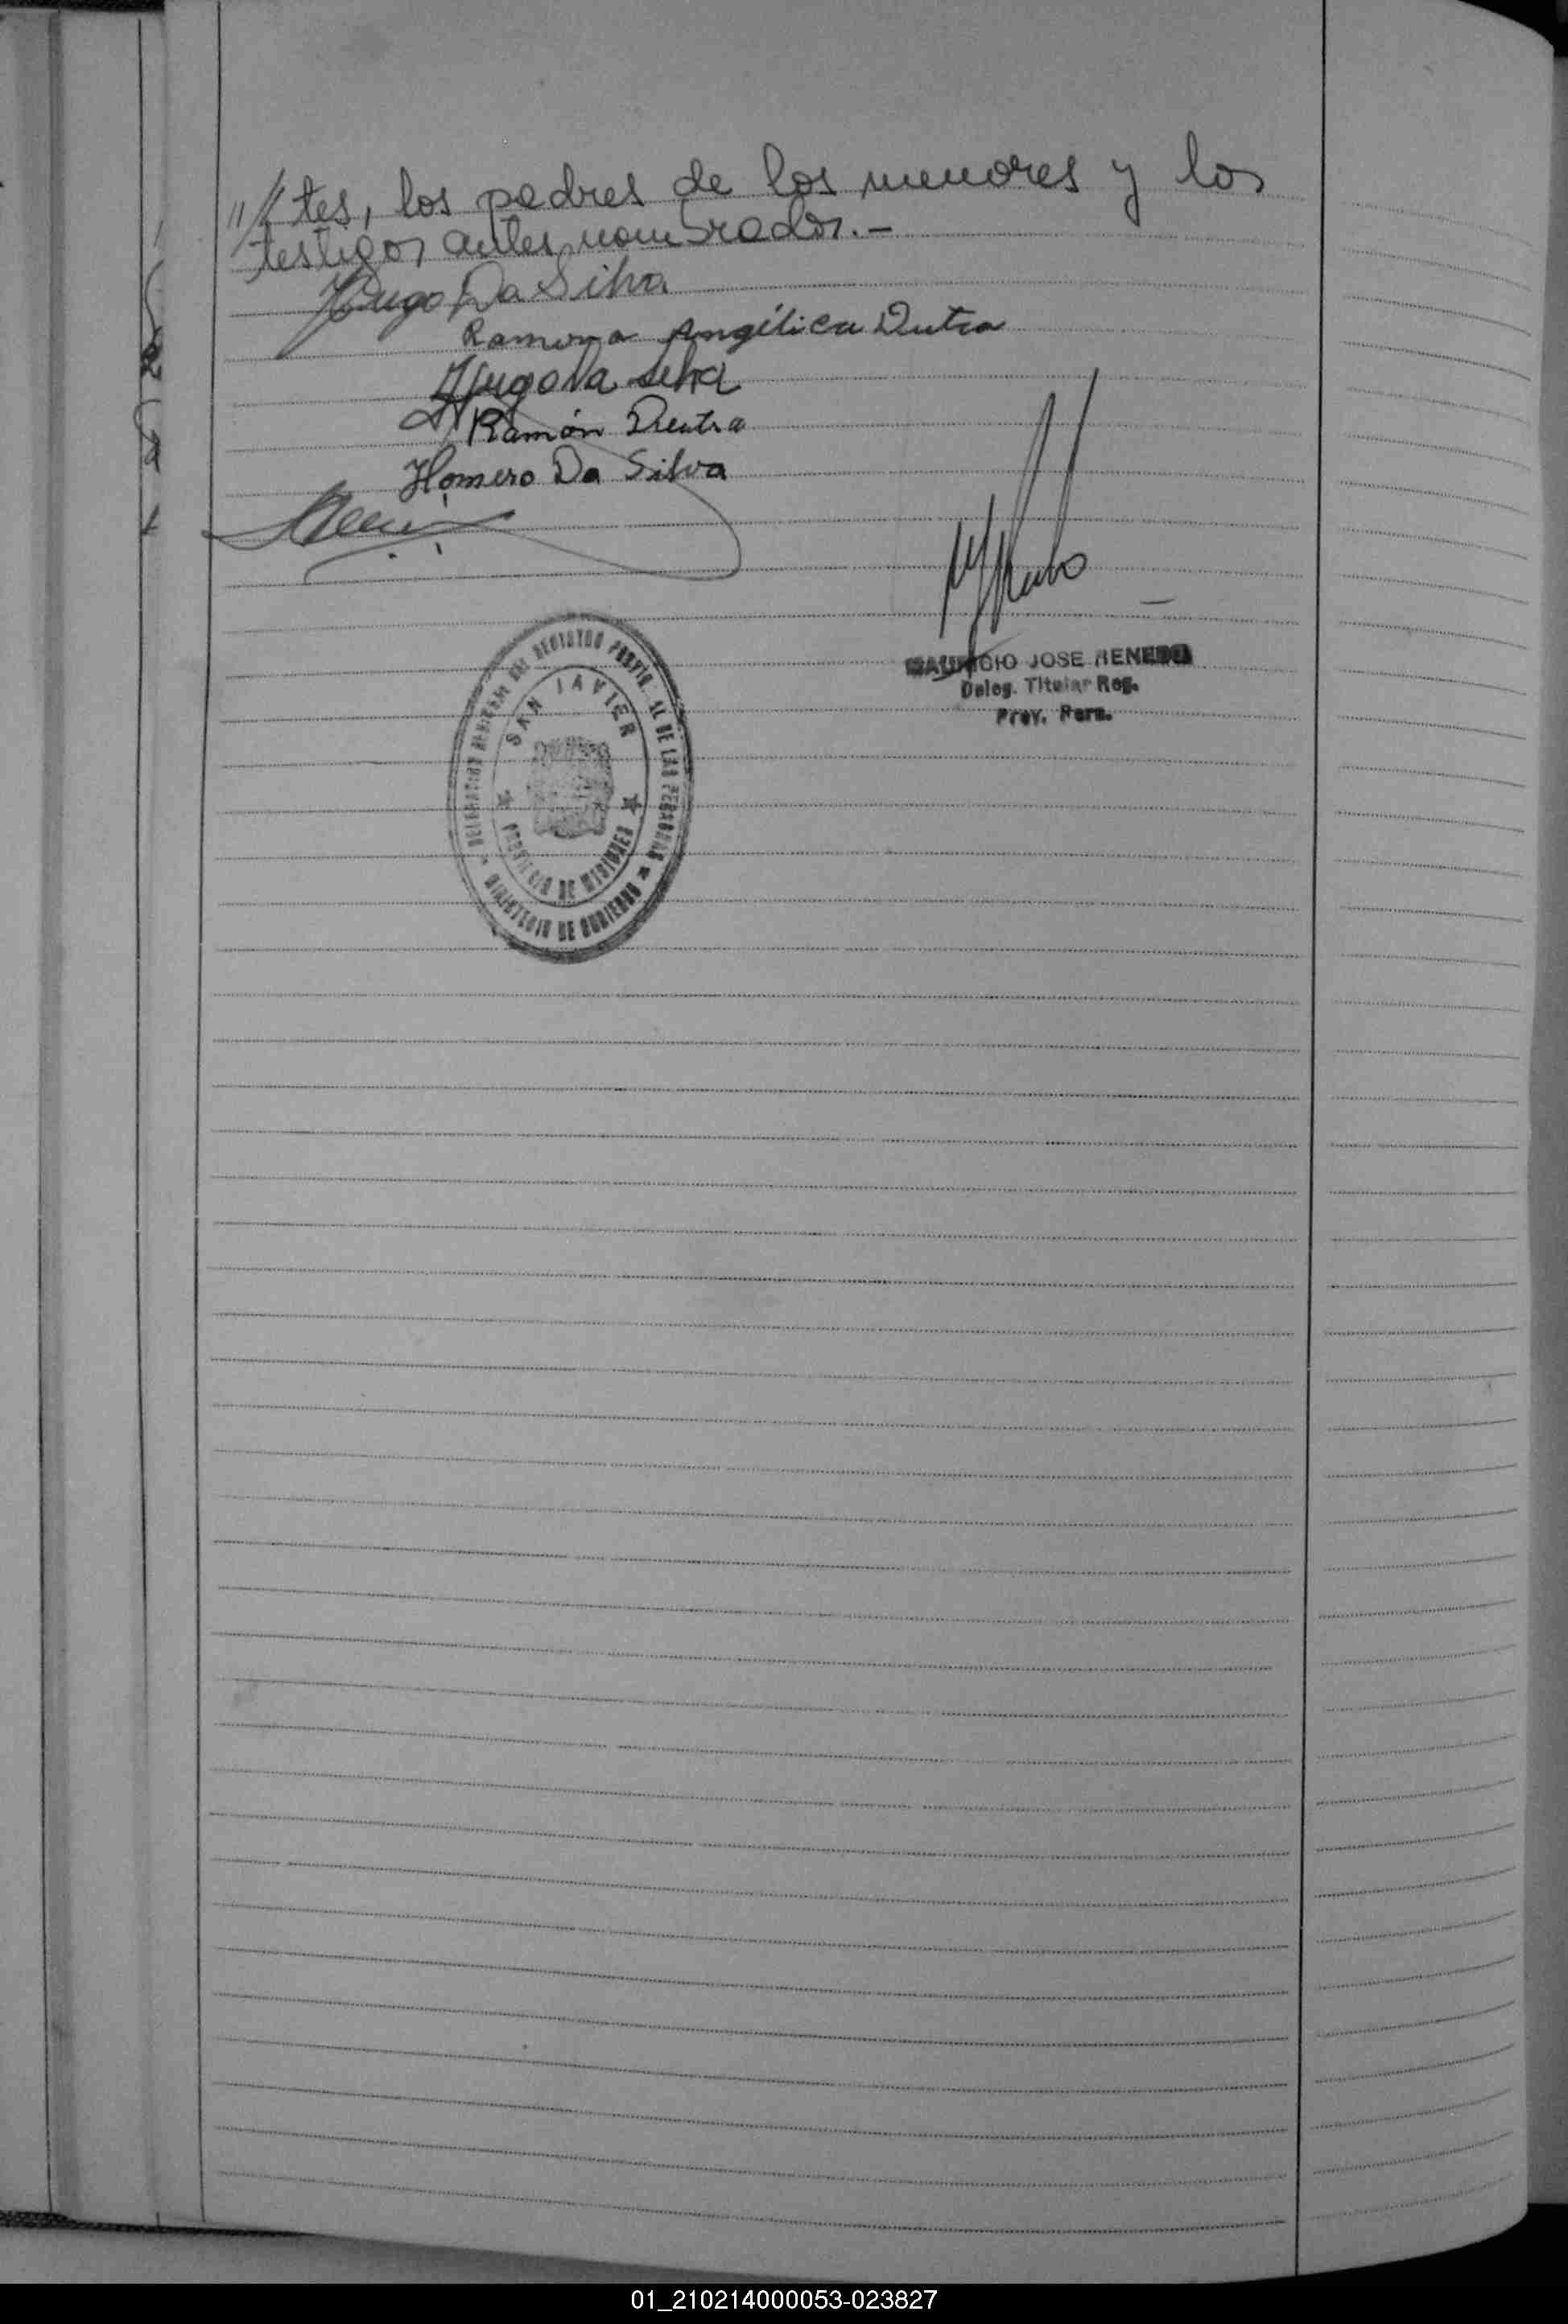 "// tes, los padres de los menores y los
testigos antes nombrados.-
Hugo Da Silva
Ramona Angélica Dutra
Hugo Da Silva
Ramón Dutra
Homero Da Silva
MAURICIO JOSE RENEDO
Deleg. Titular Reg.
Prov. Pers.
DELEGACION REGISTRO PROVINCIAL DE LAS PERSONAS
SAN JAVIER
PROVINCIA DE MISIONES
MINISTERIO DE GOBIERNO
01_210214000053-023827